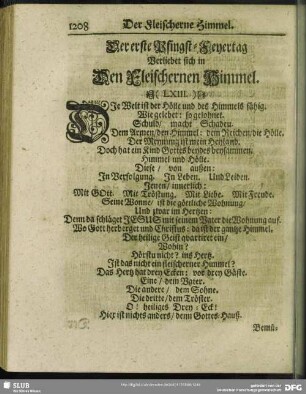 1208
Der Fleischerne Himmel.
Der erste Pfingst-Feyertag
Verliebet sich in
Den Fleischernen Himmel.
LXIII.
DJe Welt ist der Hölle und des Himmels fähig.
Wie gelebet: so gelohnet.
Schuld/ macht Schuden.
Dem Armen/ den Himmel: dem Reichen/ die Hölle.
Der Meynung ist mein Heyland.
Doch hat ein Kind Gottes beydes beysammen.
Himmel und Hölle.
Diese/ von aussen:
In Verfolgung. In Leben. Und Leiden.
Jenen/ innerlich:
Mit GOtt. Mit Tröstung. Mit Liebe. Mit Freude.
Seine Wonne/ ist die göttliche Wohnung
Und zwar im Hertzen:
Denn da schläget JESUS mit seinem Vater die Wohnung auf.
Wo Gott herberget und Christus: da ist der gantze Himmel.
Der heilige Geist quartiret ein/
Wohin?
Hörstu nicht? ins Hertz.
Ist das nicht ein fleischerner Himmel?
Das Hertz hat drey Ecken: vor drey Gäste.
Eine/ dem Vater.
Die andere/ dem Sohne.
Die dritte/ dem Tröster.
O! heiliges Drey-Eck!
Hier ist nichts anders/ denn Gottes Hauß.
Bemü-
SLUB
Wir führen Wissen.
DFG